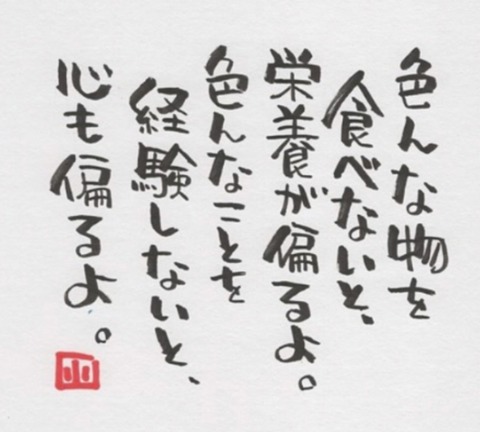 色んな物を
食べないと、
栄養が偏るよ。
色んなことを
経験しないと、
心も偏るよ。